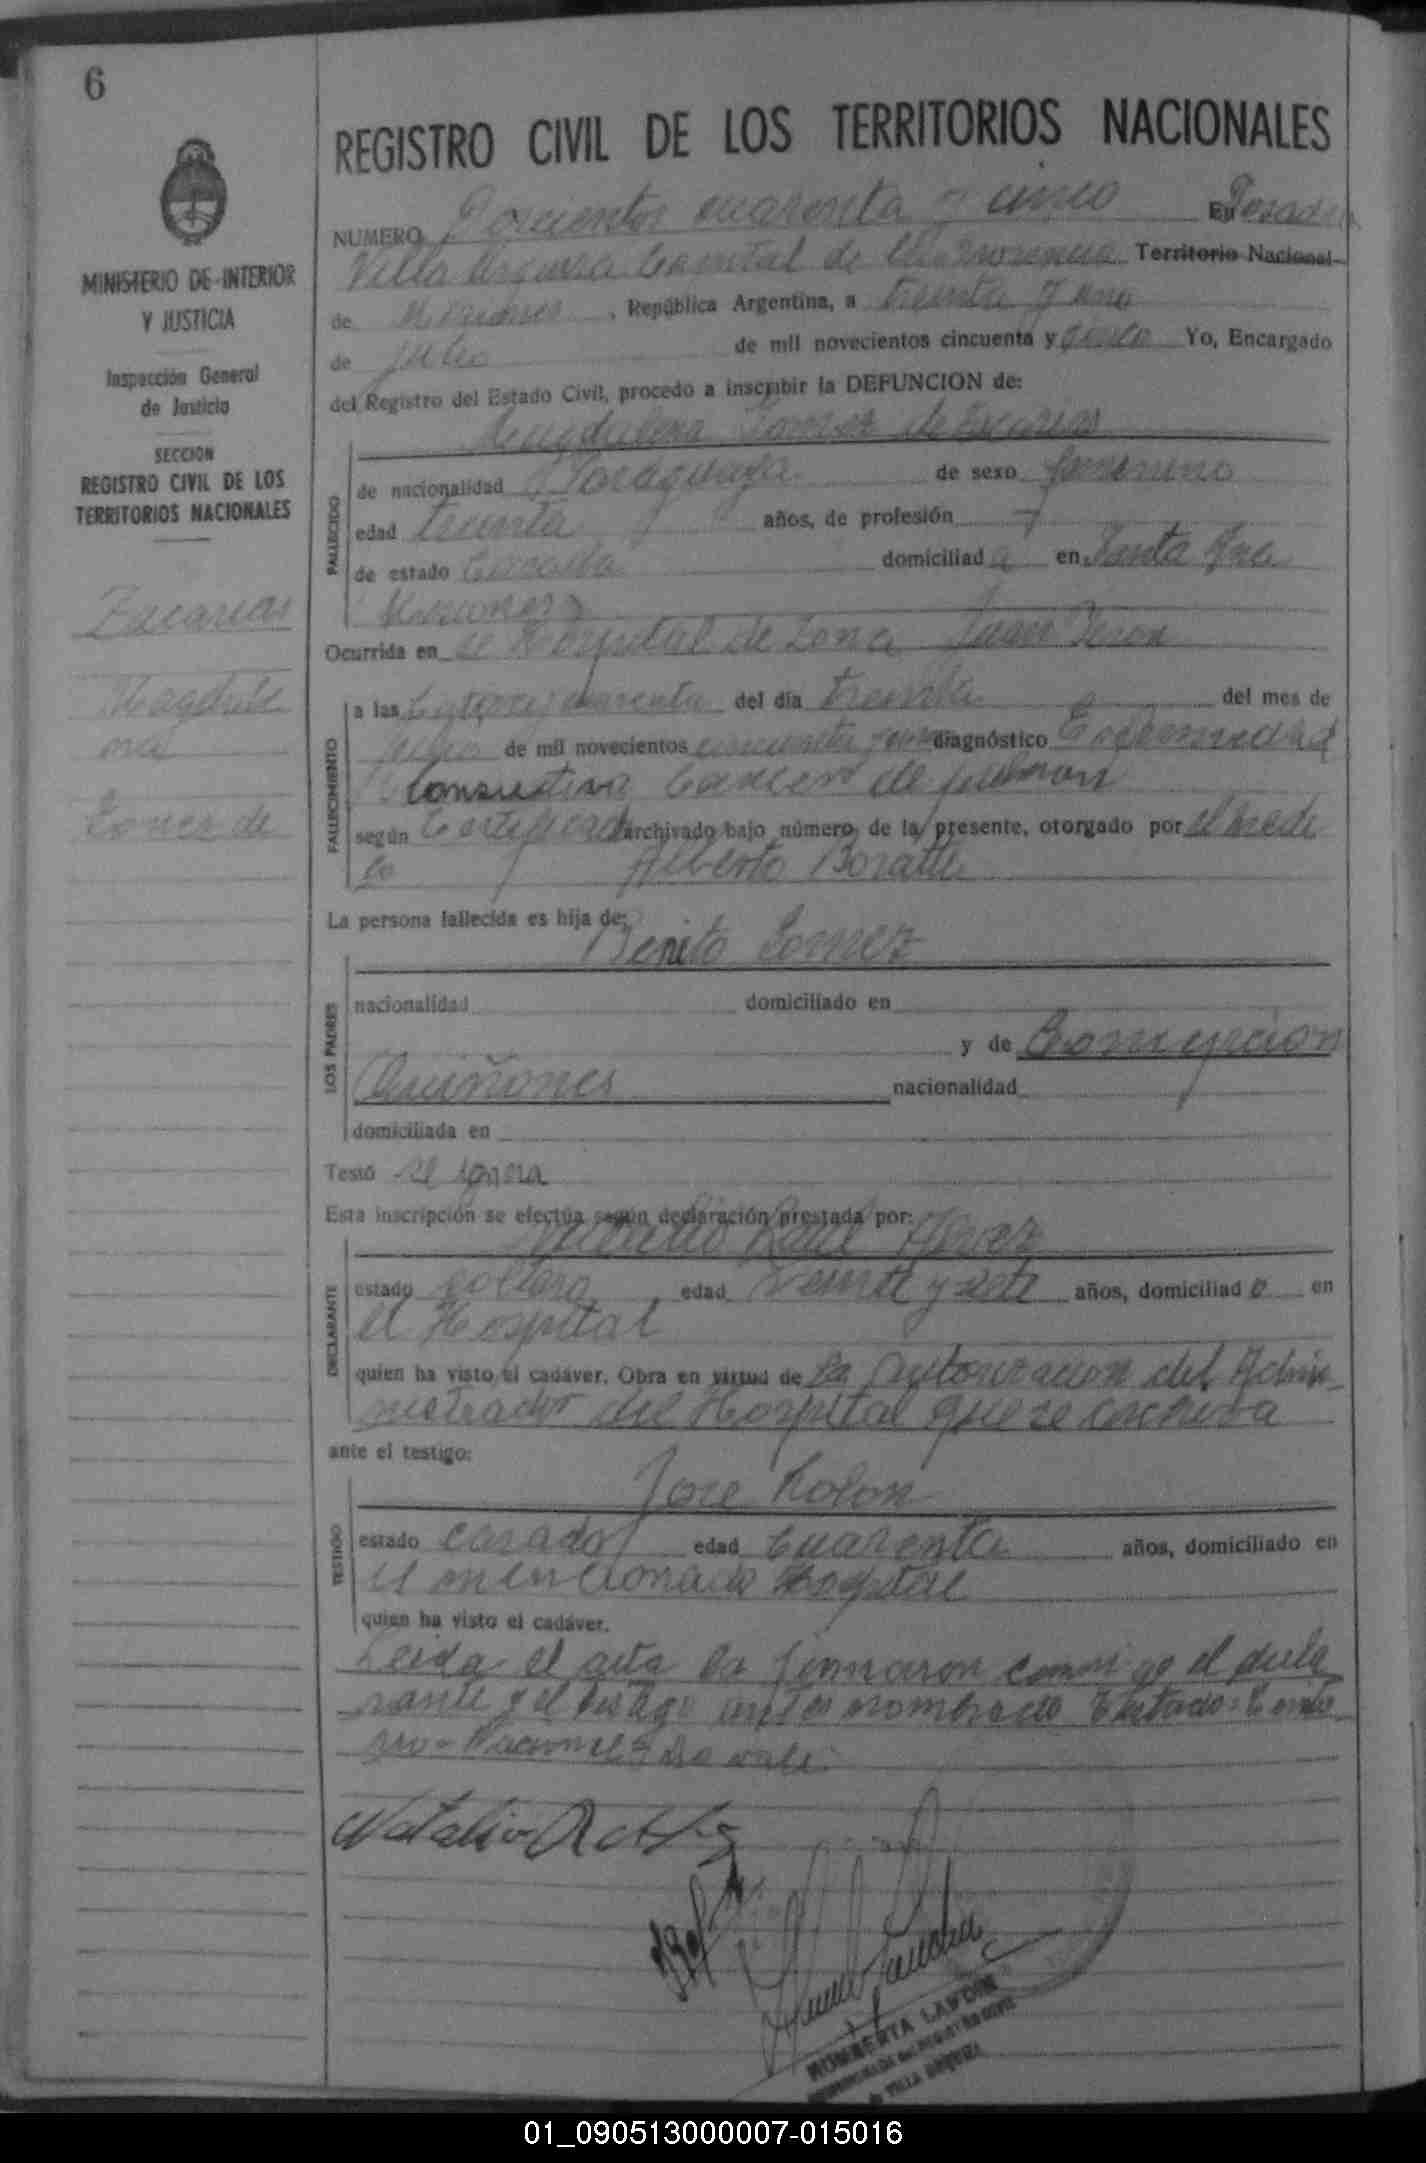 6
MINISTERIO DE INTERIOR
Y JUSTICIA
Inspección General
de Justicia
SECCION
REGISTRO CIVIL DE LOS
TERRITORIOS NACIONALES
Zacarias
Magdale
na
Gomez de
REGISTRO CIVIL DE LOS TERRITORIOS NACIONALES
NUMERO Doscientos cuarenta y cinco En Posadas
Villa Urquiza Capital de la Provincia Territorio Nacional
de Misiones, República Argentina, a treinta y uno
de julio de mil novecientos cincuenta y cinco Yo, Encargado
del Registro del Estado Civil, procedo a inscribir la DEFUNCION de:
Magdalena Gomez de Zacarias
FALLECIDO
de nacionalidad Paraguaya de sexo femenino
edad treinta años, de profesión
de estado Casada domiciliada en Santa Ana
Misiones
Ocurrida en el Hospital de Zona Juan Peron
FALLECIMIENTO
a las Catorce y cuarenta del día treinta del mes de
julio de mil novecientos cincuenta y diagnóstico Enfermedad
Consuntiva Cancer de pulmon
según Certificado archivado bajo número de la presente, otorgado por el medi
co Alberto
La persona fallecida es hija de:
Benito Gomez
LOS PADRES
nacionalidad domiciliado en
y de Concepcion
Quiñones nacionalidad
domiciliada en
Testó se ignora
Esta inscripción se efectúa según declaración prestada por:
DECLARANTE
estado soltero edad veinte y siete años, domiciliado en
el Hospital
quien ha visto el cadáver. Obra en virtud de la autorizacion del Admi
nistrador del Hospital que se archiva
ante el testigo:
Jose Kolon
TESTIGO
estado casado edad Cuarenta años, domiciliado en
el mencionado Hospital
quien ha visto el cadáver.
Leida el acta la firmaron conmigo el decla
rante y el testigo antes nombrado Testado: Territo
rio - Nacional: No vale
ROBERTA
VILLA URQUIZA
01_090513000007-015016